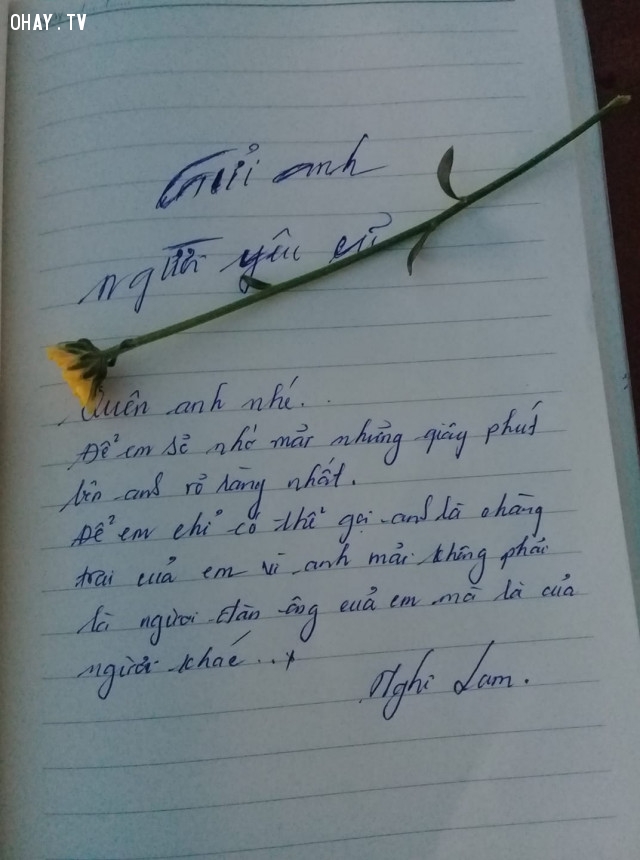 OHAY.TV
Gửi anh
người yêu củ
Quên anh nhé..
Để em sẻ nhớ mải những giây phút
bên anh rỏ ràng nhất.
Để em chỉ có thể gọi anh là chàng
trai của em vì anh mải không phải
là người đàn ông của em mà là của
người khác...
Nghi Lam.